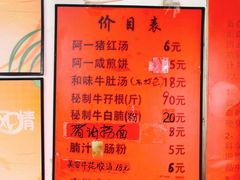 价目表
阿一猪红汤 6元
阿一咸煎饼 5元
和味牛肚汤 18元
秘制牛孖根(斤) 90元
秘制牛白腩 20元
猪油捞面 8元
腩汁 肠粉 5元
18元
晴